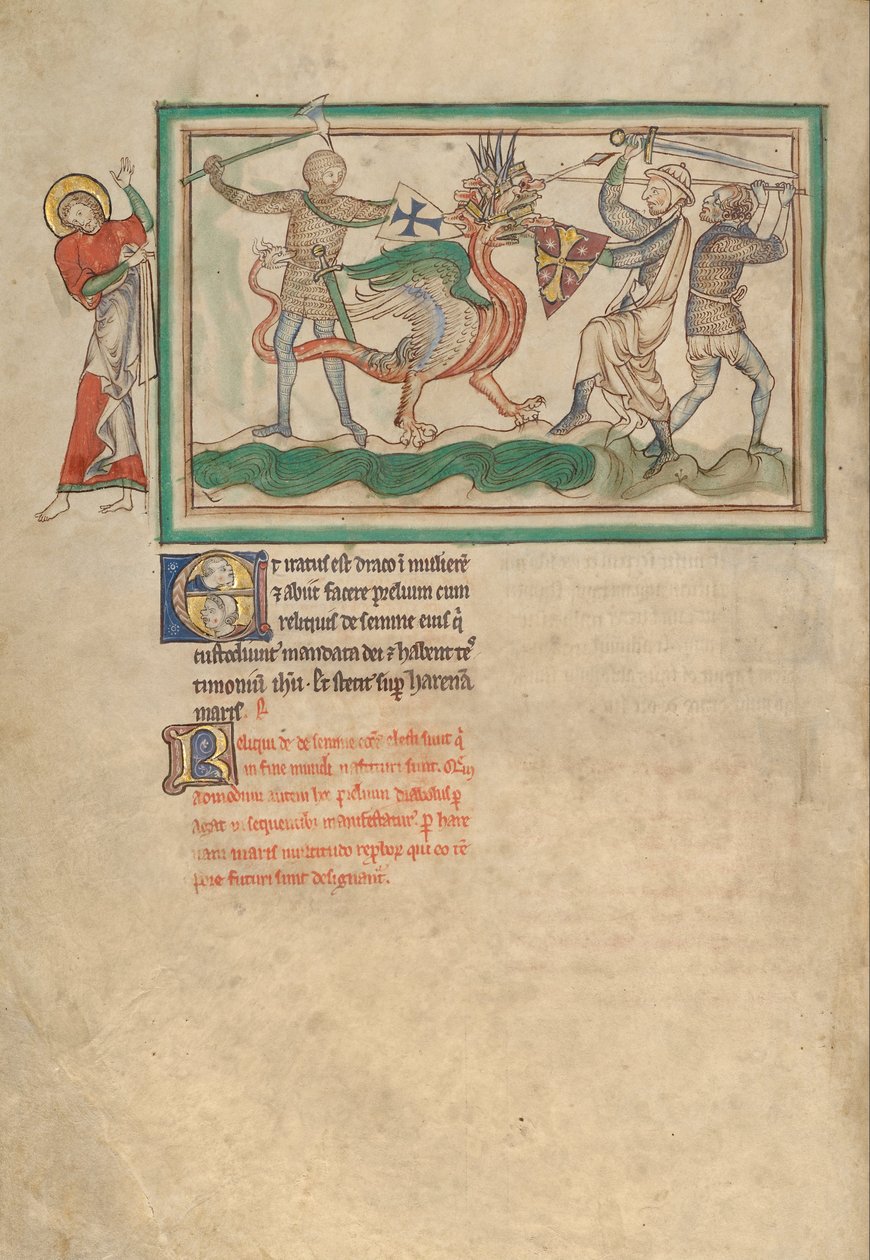 Et iratus est draco ĩ mulierẽ
⁊ abiit facere prelium cum
reliquis de semine eius q̃
custodiunt mandata dei ⁊ habent tes
timoniũ ih̃u. Et stetit sup̱ harenã
maris. R̃
Reliqui de semine electi sunt q̃
in fine mundi nascituri sunt. Qem
admodum autem hoc p̱relium diabolus p̱
agat ĩ sequentib; manifestatur. p̱ hare
nam maris multitudo rep̱bor̃ qui eo tẽ
pore futuri sunt designantᷣ.